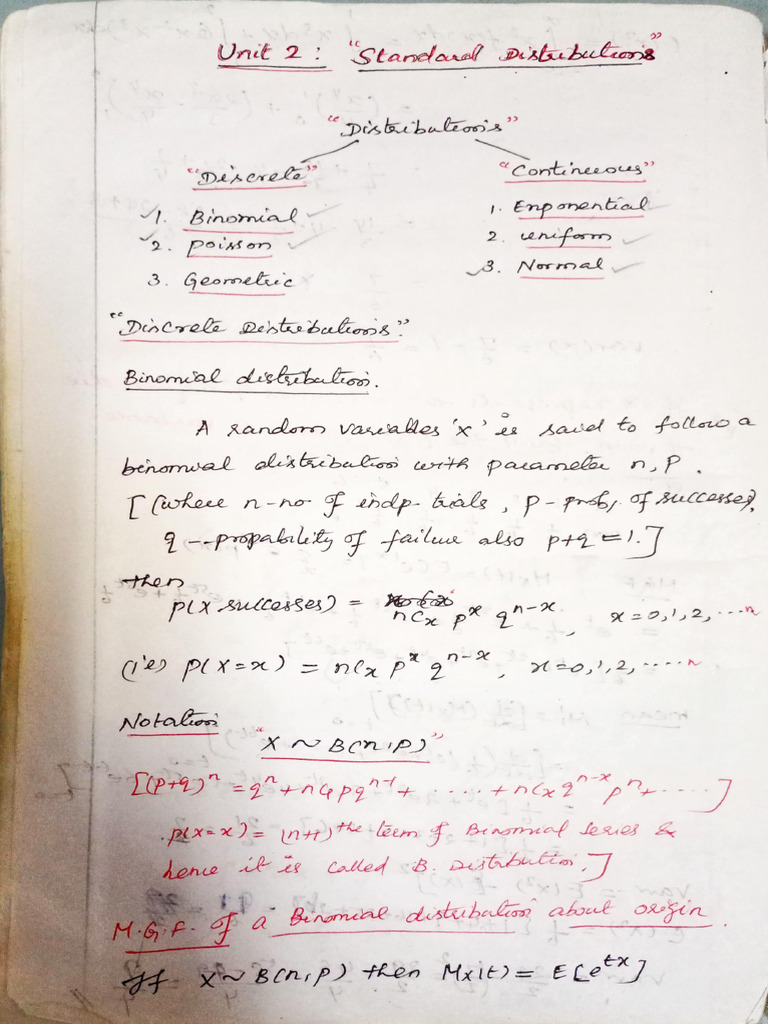 Unit 2 : "Standard Distributions"
"Distributions"
"Discrete"
1. Binomial
2. poisson
3. Geometric
"Continuous"
1. Exponential
2. uniform
3. Normal
"Discrete Distributions."
Binomial distribution.
A random variables 'x' is said to follow a
binomial distribution with parameter n, p.
[(where n-no of indp- trials, p- prob, of successes),
q -- propability of failure also p+q = 1.]
then
p(x successes) = nCx p^x q^{n-x}, x = 0,1,2, ....n
(ie) p(X=x) = nCx p^x q^{n-x}, x = 0,1,2, .....n
Notation
"X ~ B(n,p)"
[(p+q)^n = q^n + nC1 p q^{n-1} + ..... + nCx q^{n-x} p^n + .....]
p(x=x) = (n+1)^the term of Binomial series &
hence it is called B. Distribution.]
M.G.F. of a Binomial distribution about origin.
If X ~ B(n,p) then Mx(t) = E[e^{tx}]